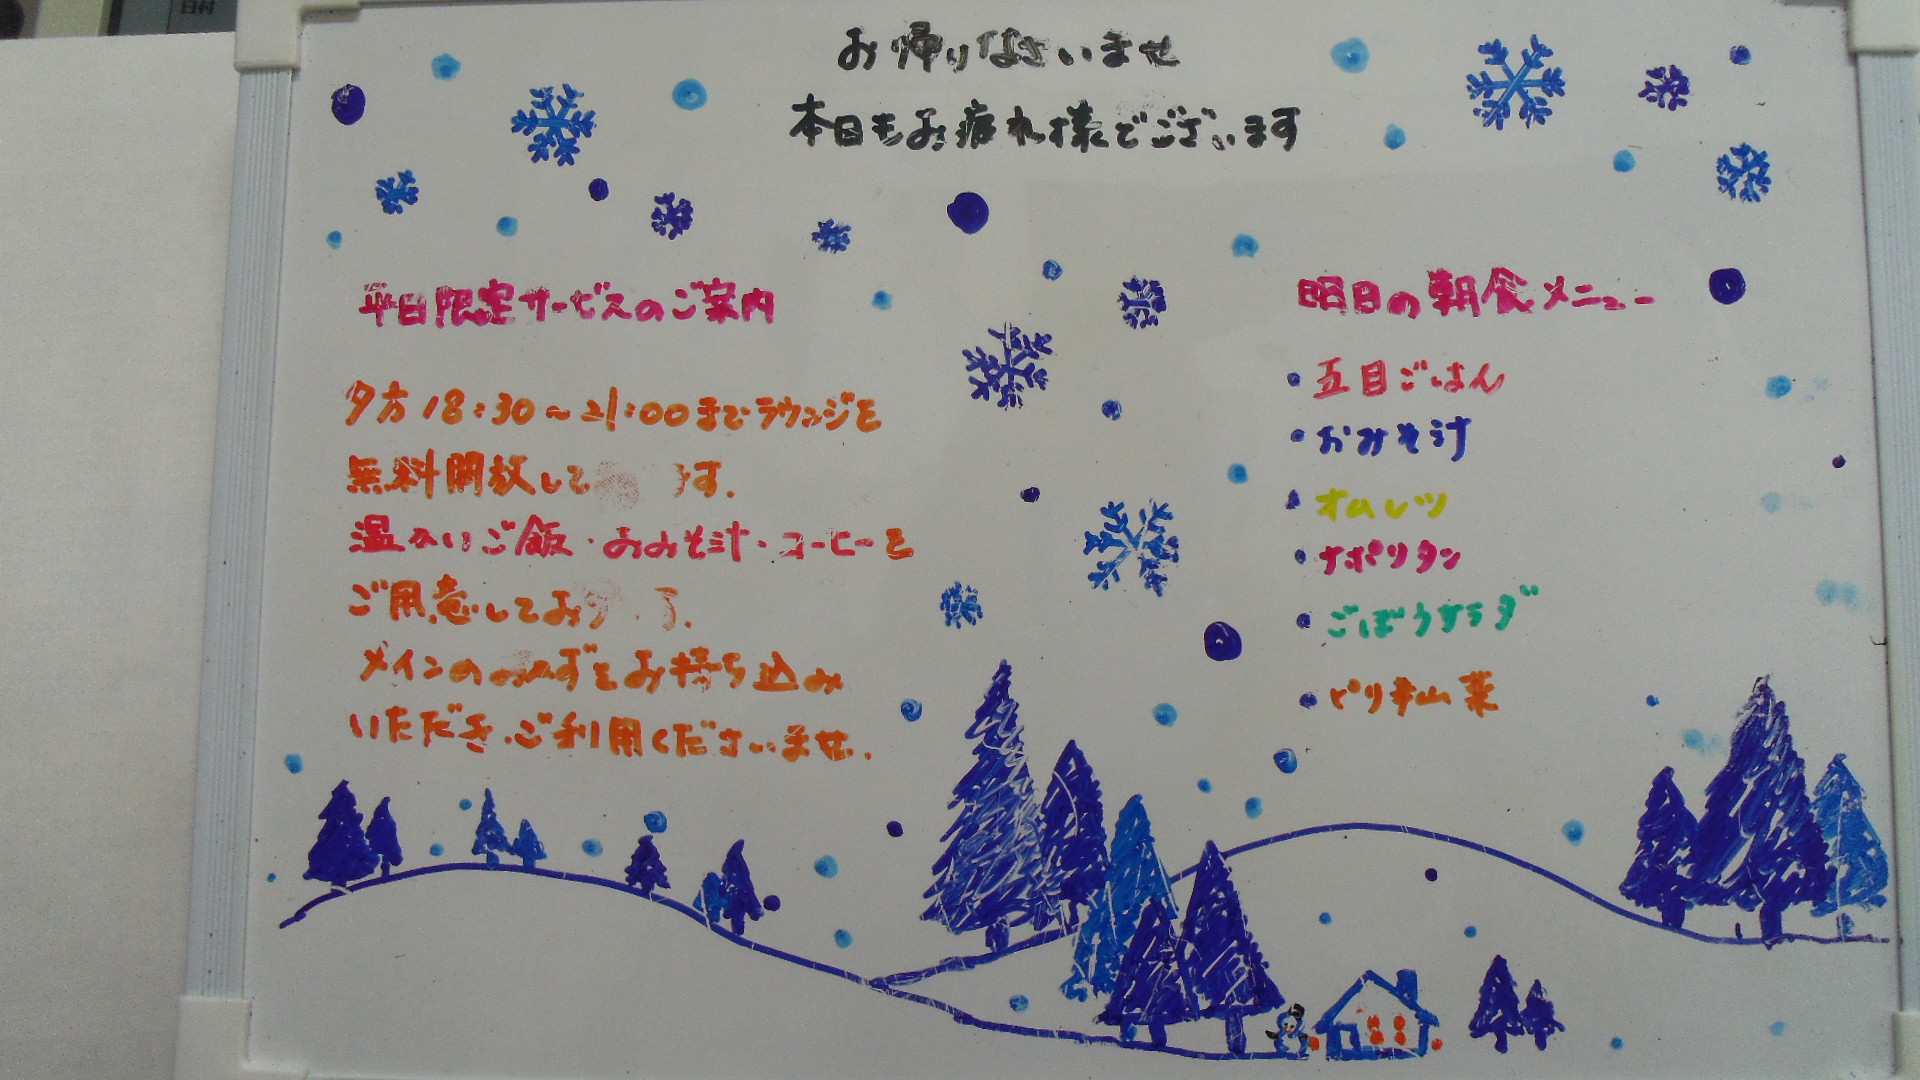 日付
お帰りなさいませ
本日もお疲れ様でございます
平日限定サービスのご案内
夕方18:30～21:00までラウンジを
無料開放して す.
温かいご飯・おみそ汁・コーヒーを
ご用意してお す.
メインのおかずをお持ち込み
いただき、ご利用くださいませ.
明日の朝食メニュー
・五目ごはん
・おみそ汁
・オムレツ
・ナポリタン
・ごぼうサラダ
・ピリ辛山菜